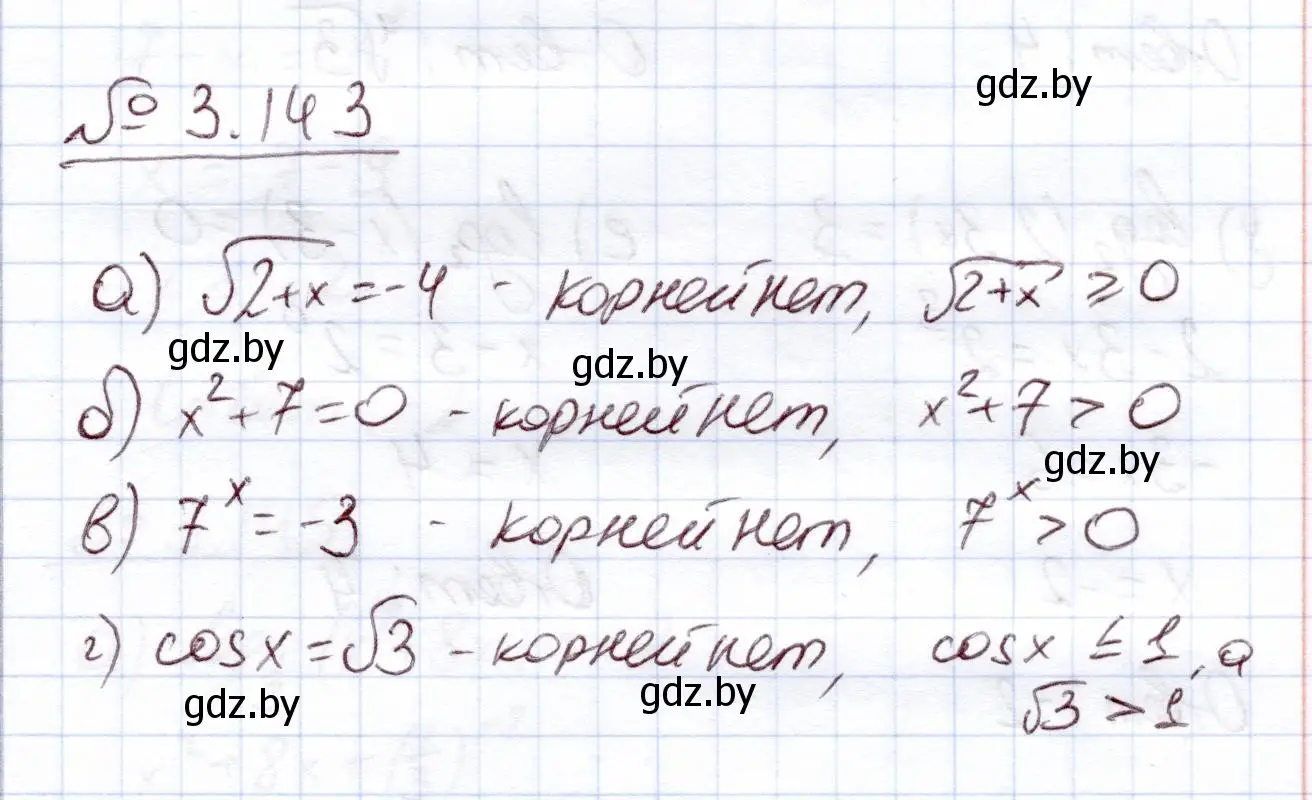 gdz.by
№ 3.143
а) √2+x = -4 - корней нет, √2+x ≥ 0
gdz.by gdz.by
б) x² + 7 = 0 - корней нет, x² + 7 > 0
gdz.by
в) 7ˣ = -3 - корней нет, 7ˣ > 0
г) cos x = √3 - корней нет, cos x ≤ 1, а
√3 > 1
gdz.by gdz.by